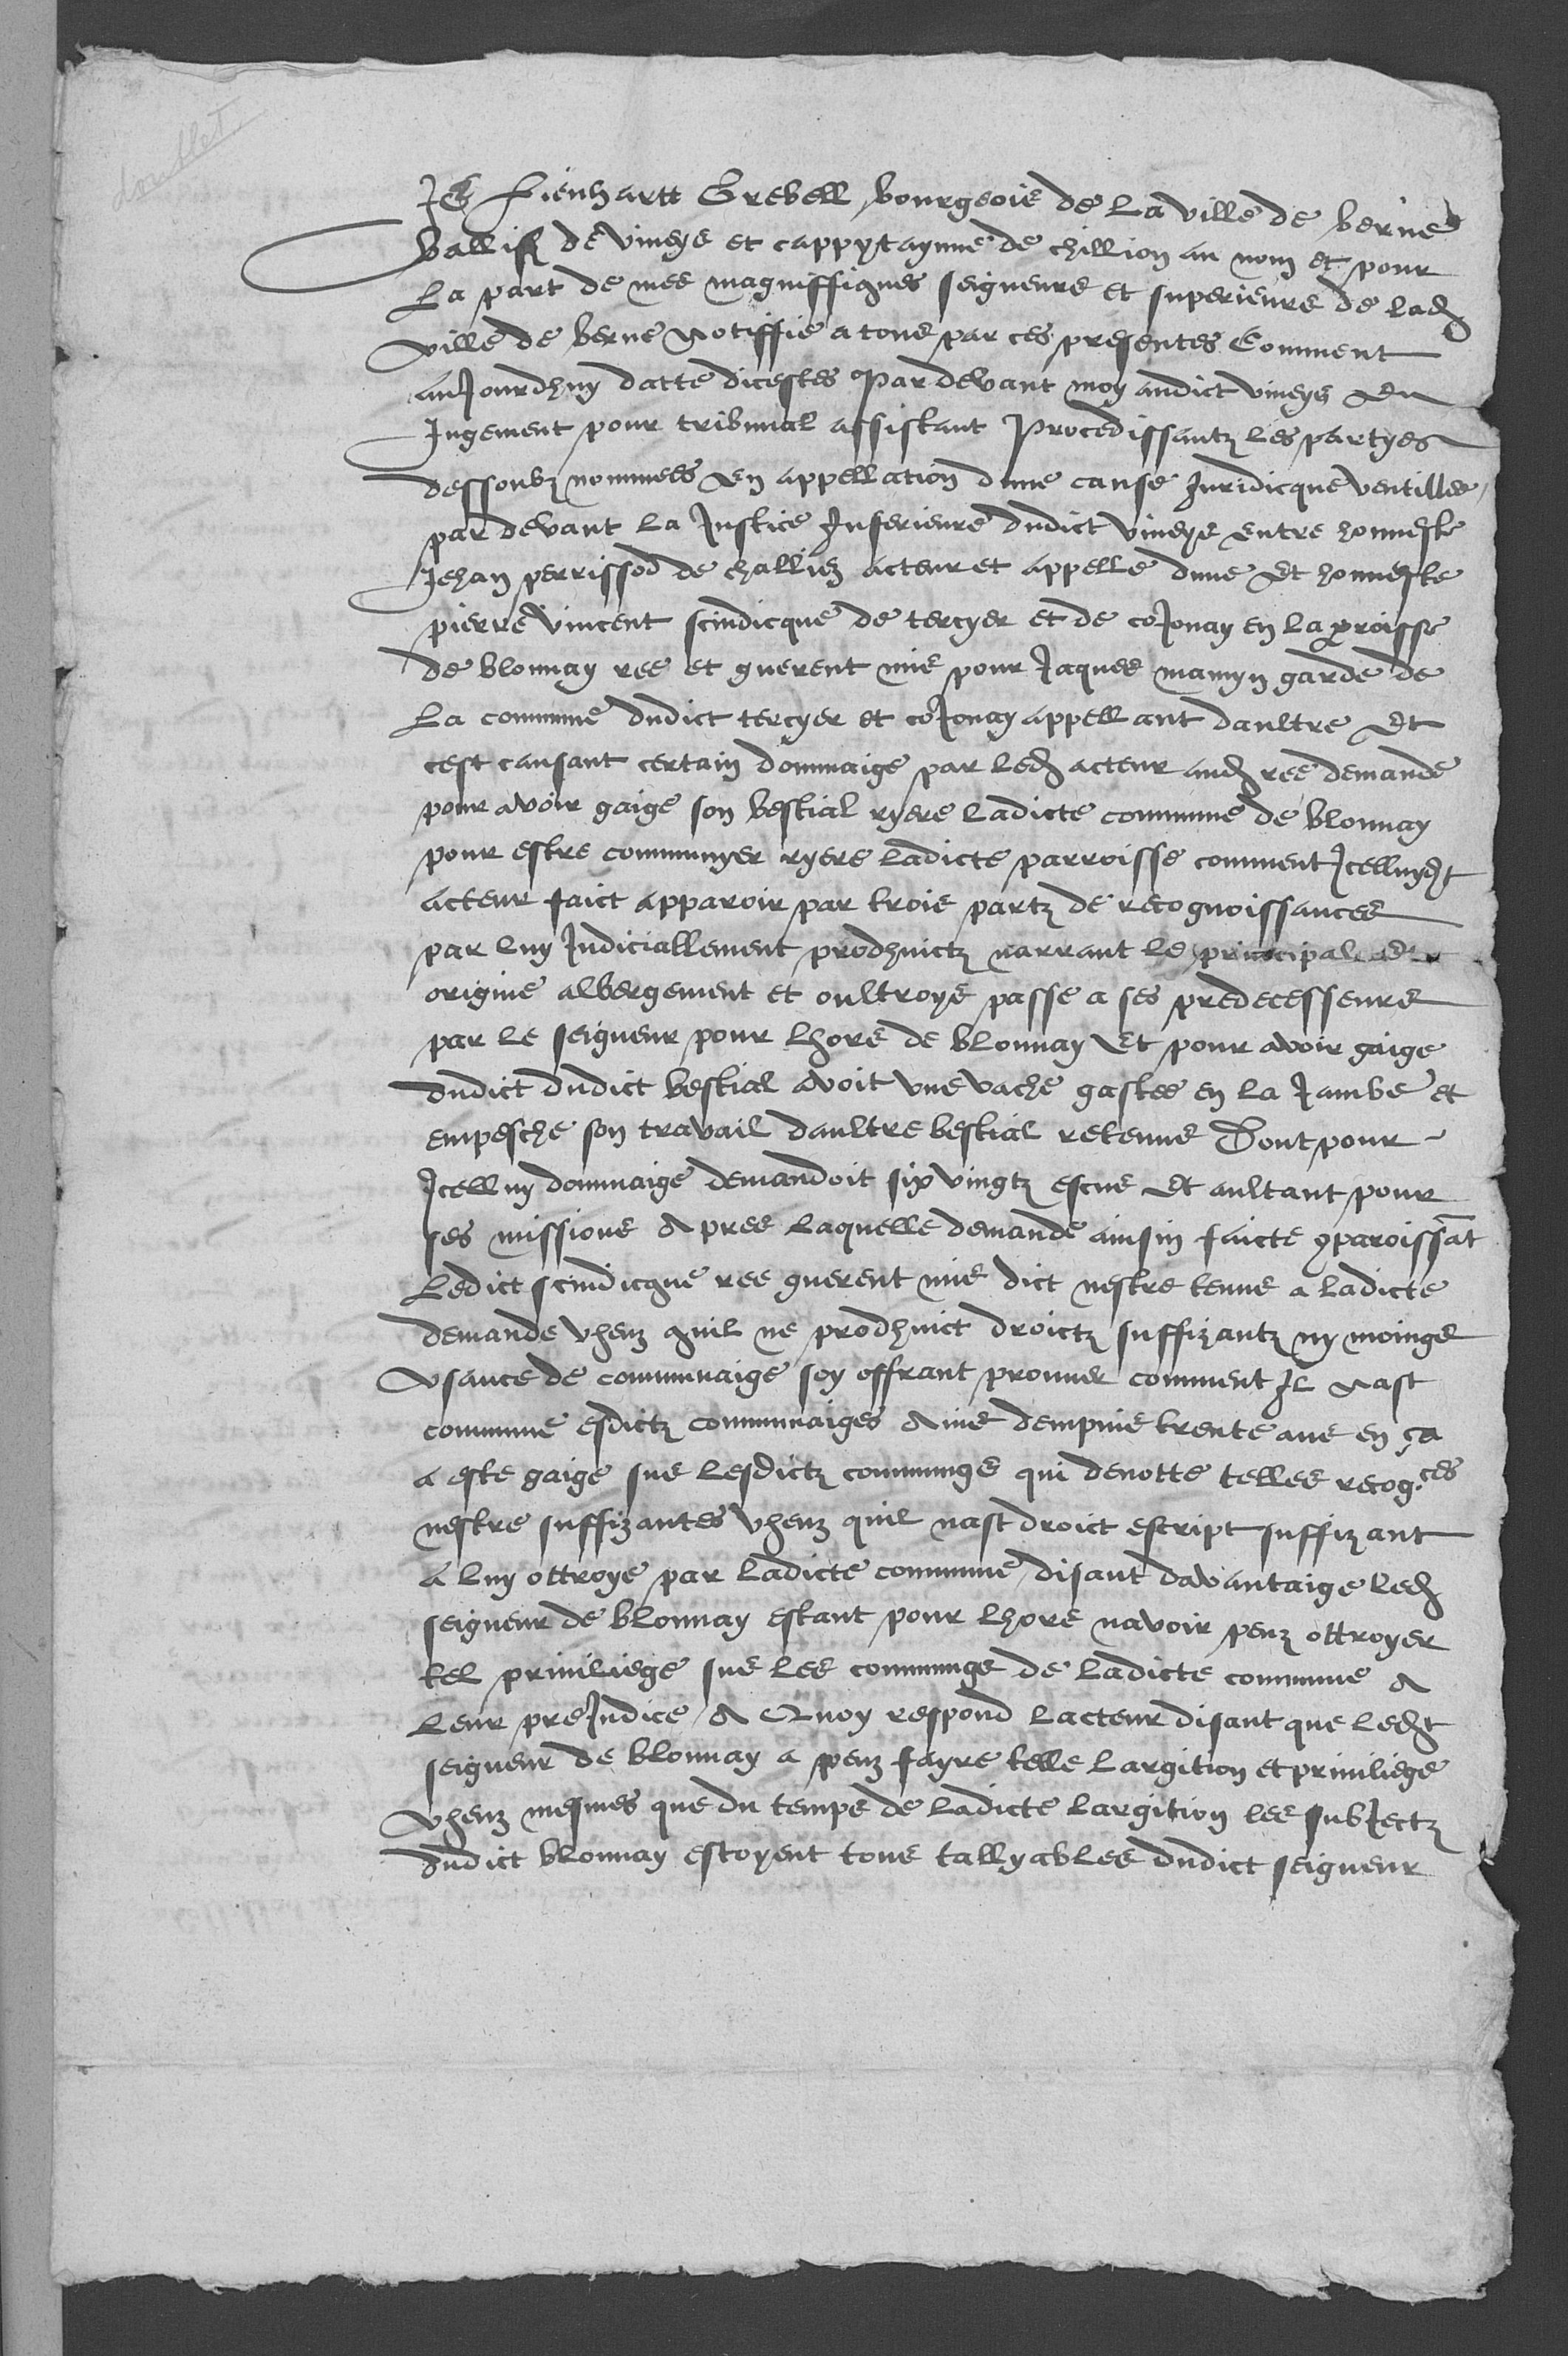 doublet
Je Lienhartt Grebell bourgeois de la ville de berne
ballif de viveys et cappytaynne de chillion au nom et pour
la part de mes magniffiques seigneurs et superieurs de lad
ville de berne Notiffie a tous par ces presentes Comment
auJourdhuy datte dicestes Par devant moy audict viveys En
Jugement pour tribunal assistant Procedissantz les partyes
dessoubz nommees En appellation dune cause Juridicque ventillee
par devant la Justice Inferieure dudict viveys entre honneste
Jehan perrissod de challiez acteur et appelle dune Et honneste
pierre vincent scindicque de tercyer et de coJonay en la proisse
de blonnay ree et guerent mis pour Jaques mamyn garde de
la commune dudict tercyer et coJonay appellant daultre Et
cest causant certain dommaige par led acteur aud ree demande
pour avoir gaige son bestial ryere ladicte commune de blonnay
pour estre communyer ryere ladicte parroisse comment Icelluydt
acteur faict apparoir par trois partz de recognoissances
par luy Judiciallement prodhuictz narrant le principal et
origine albergement et oultroye passe a ses predecesseurs
par le seigneur pour lhors de blonnay Et pour avoir gaige
dudict dudict bestial avoit une vache gastee en la Jambe et
empesche son travail daultre bestial retenus Dont pour
Icelluy dommaige demandoit six vingtz escus Et aultant pour
ses missions Apres laquelle demande ainsin faicte 9paroissat
Ledict scindicque ree guerent mis dict nestre tenus a ladicte
demande vheuz quil ne prodhuict droictz suffizantz ny moings
Usance de communaige soy offrant prouver comment Il nast
commune esdictz communaiges Ains dempuis trente ans en ça
a este gaige sus lesdictz commungs qui denotte telles recog.ces
nestre suffizantes vheuz quil nast droict escript suffizant
a luy ottroye par ladicte commune disant davantaige led
seigneur de blonnay estant pour lhors navoir peuz ottroyer
tel priniliege sus les commungs de ladicte commune A
leur preJudice A Quoy respond lacteur disant que ledt
seigneur de blonnay a peuz fayre telle largition et priniliege
vheuz mesmes que du temps de ladicte largition les subJectz
dudict blonnay estoyent tous tallyables dudict seigneur